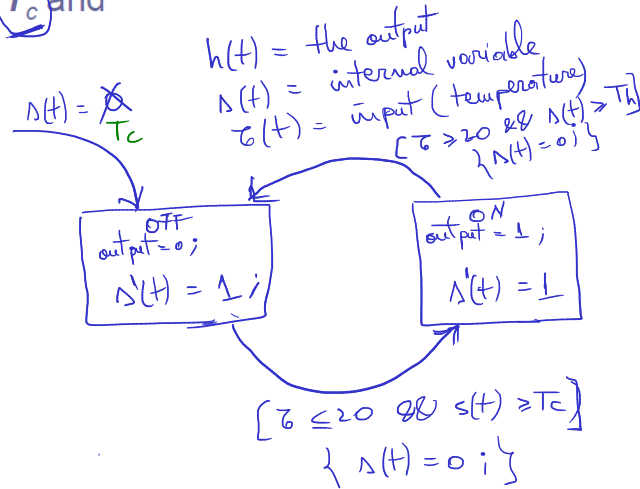 Tc and
h(t) = the output
s(t) = internal variable
τ(t) = input (temperature)
s(t) = 0
Tc
[τ ≥ 20 && s(t) ≥ Th]
{s(t) = 0;}
OFF
output = 0;
s'(t) = 1;
ON
output = 1;
s'(t) = 1
[τ ≤ 20 && s(t) ≥ Tc]
{ s(t) = 0 ; }